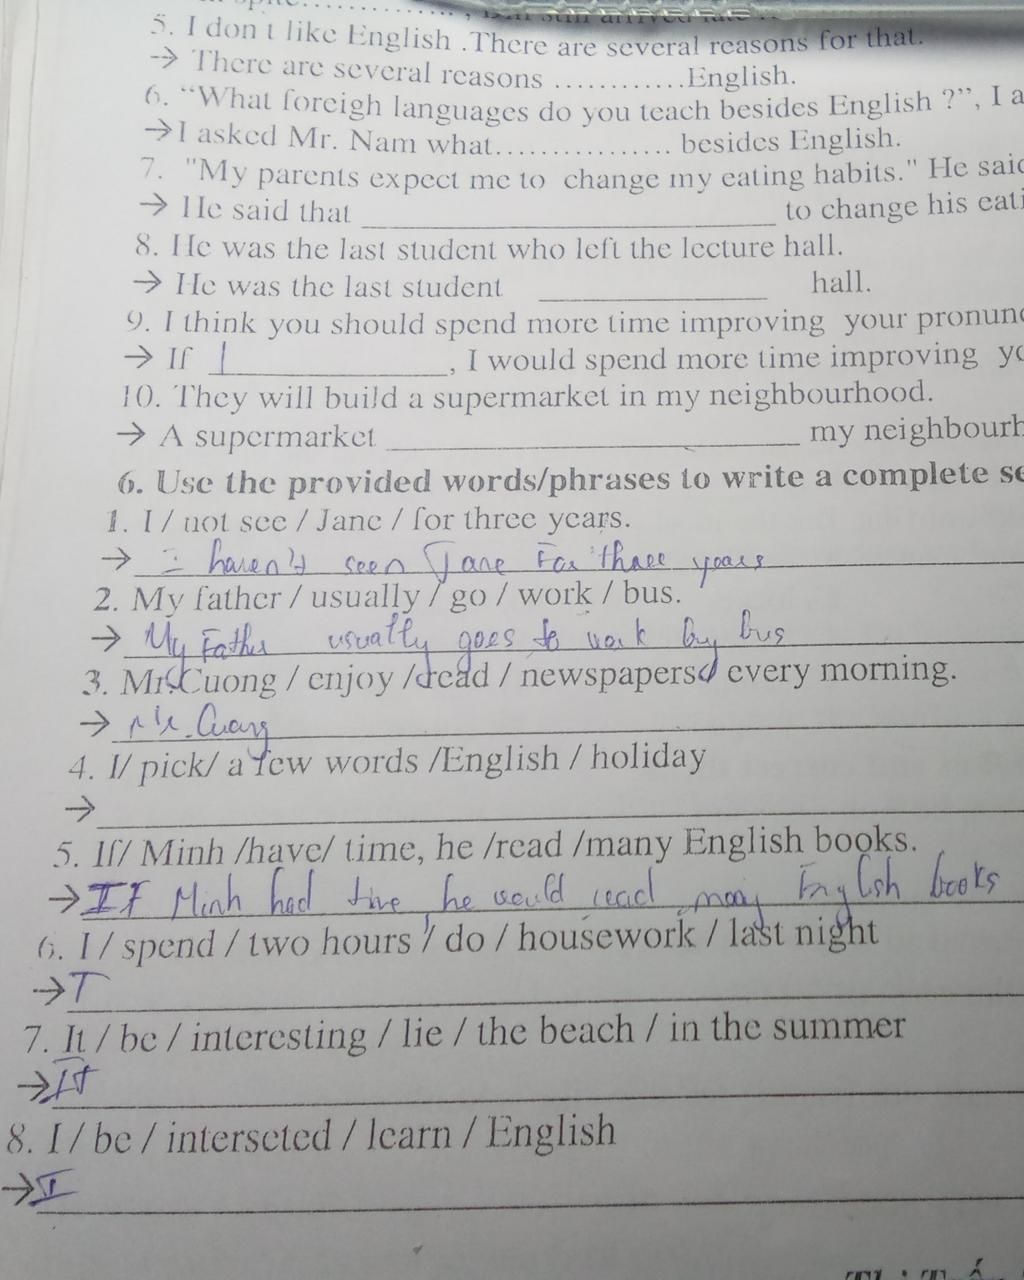 still arrived late
5. I don t like English .There are several reasons for that.
→ There are several reasons ............English.
6. “What foreigh languages do you teach besides English ?”, I a
→I asked Mr. Nam what................ besides English.
7. "My parents expect me to change my eating habits." He said
→ He said that ____________ to change his eati
8. He was the last student who left the lecture hall.
→ He was the last student ____________ hall.
9. I think you should spend more time improving your pronunc
→ If I____________, I would spend more time improving yo
10. They will build a supermarket in my neighbourhood.
→ A supermarket ____________ my neighbourh
6. Use the provided words/phrases to write a complete se
1. I / not see / Jane / for three years.
→ I haven't seen Jane For three years
2. My father / usually / go / work / bus.
→ My Father usually goes to work by bus
3. Mr.Cuong / enjoy / read / newspapers / every morning.
→ Mr. Cuong
4. I/ pick/ a few words /English / holiday
→
5. If/ Minh /have/ time, he /read /many English books.
→ If Minh had time, he would read many English books
6. I / spend / two hours / do / housework / last night
→ I
7. It / be / interesting / lie / the beach / in the summer
→ It
8. I / be / interseted / learn / English
→ I